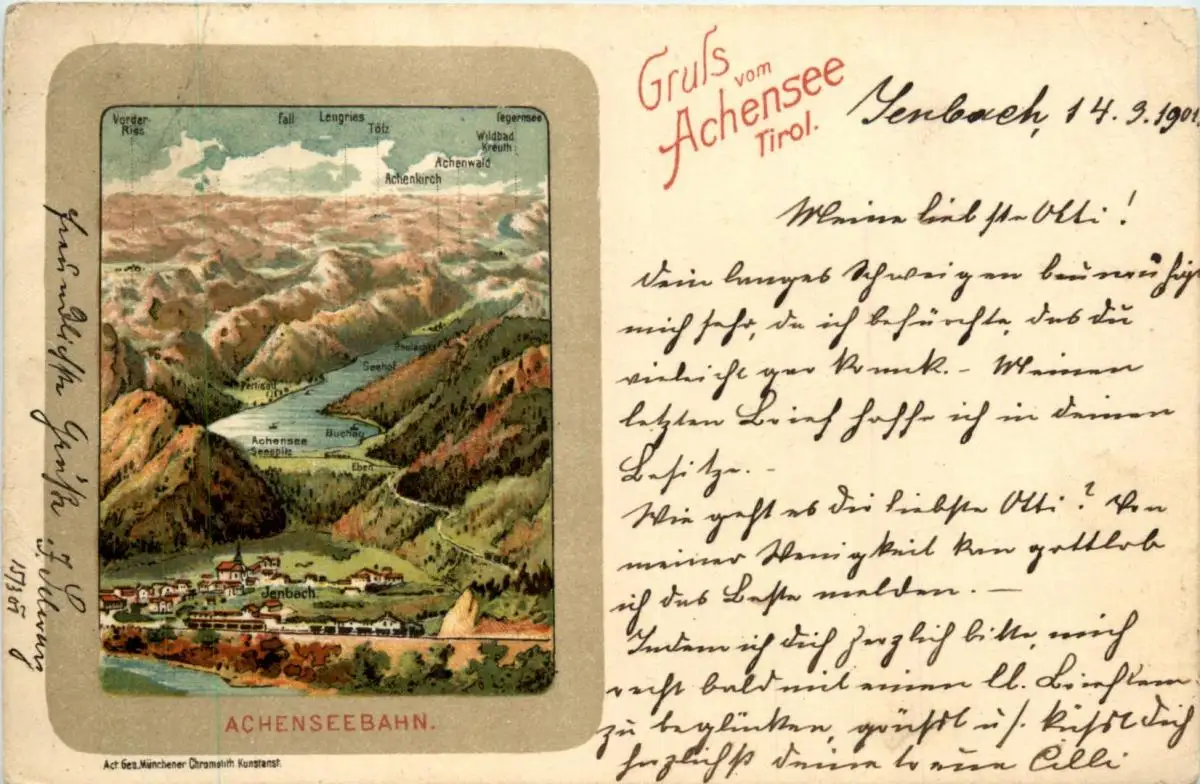 Gruſs vom
Achensee
Tirol.
Jenbach, 14. 3. 1901.
Meine liebste Otti!
Dein langes Schweigen beunruhigt
mich sehr, da ich befürchte, das du
vieleicht gar krank. – Meinen
letzten Brief hoffe ich in deinen
Besitze. –
Wie geht es dir liebste Otti? Von
meiner Wenigkeit kan gottlob
ich das Beste melden. –
Indem ich dich herzlich bitte, mich
recht bald mit einen lb.
zu beglücken, grüßt u. küßt dich
herzlichst deine treue Cilli
Vorder-
Riss
Fall
Lengries
Tölz
Tegernsee
Wildbad
Kreuth
Achenwald
Achenkirch
Scolastica
Seehof
Pertisau
Buchau
Achensee
Seespitz
Eben
Jenbach
ACHENSEEBAHN.
Act. Ges. Münchener Chromolith Kunstanst.
freundlichste Grüße J.
15/3 01